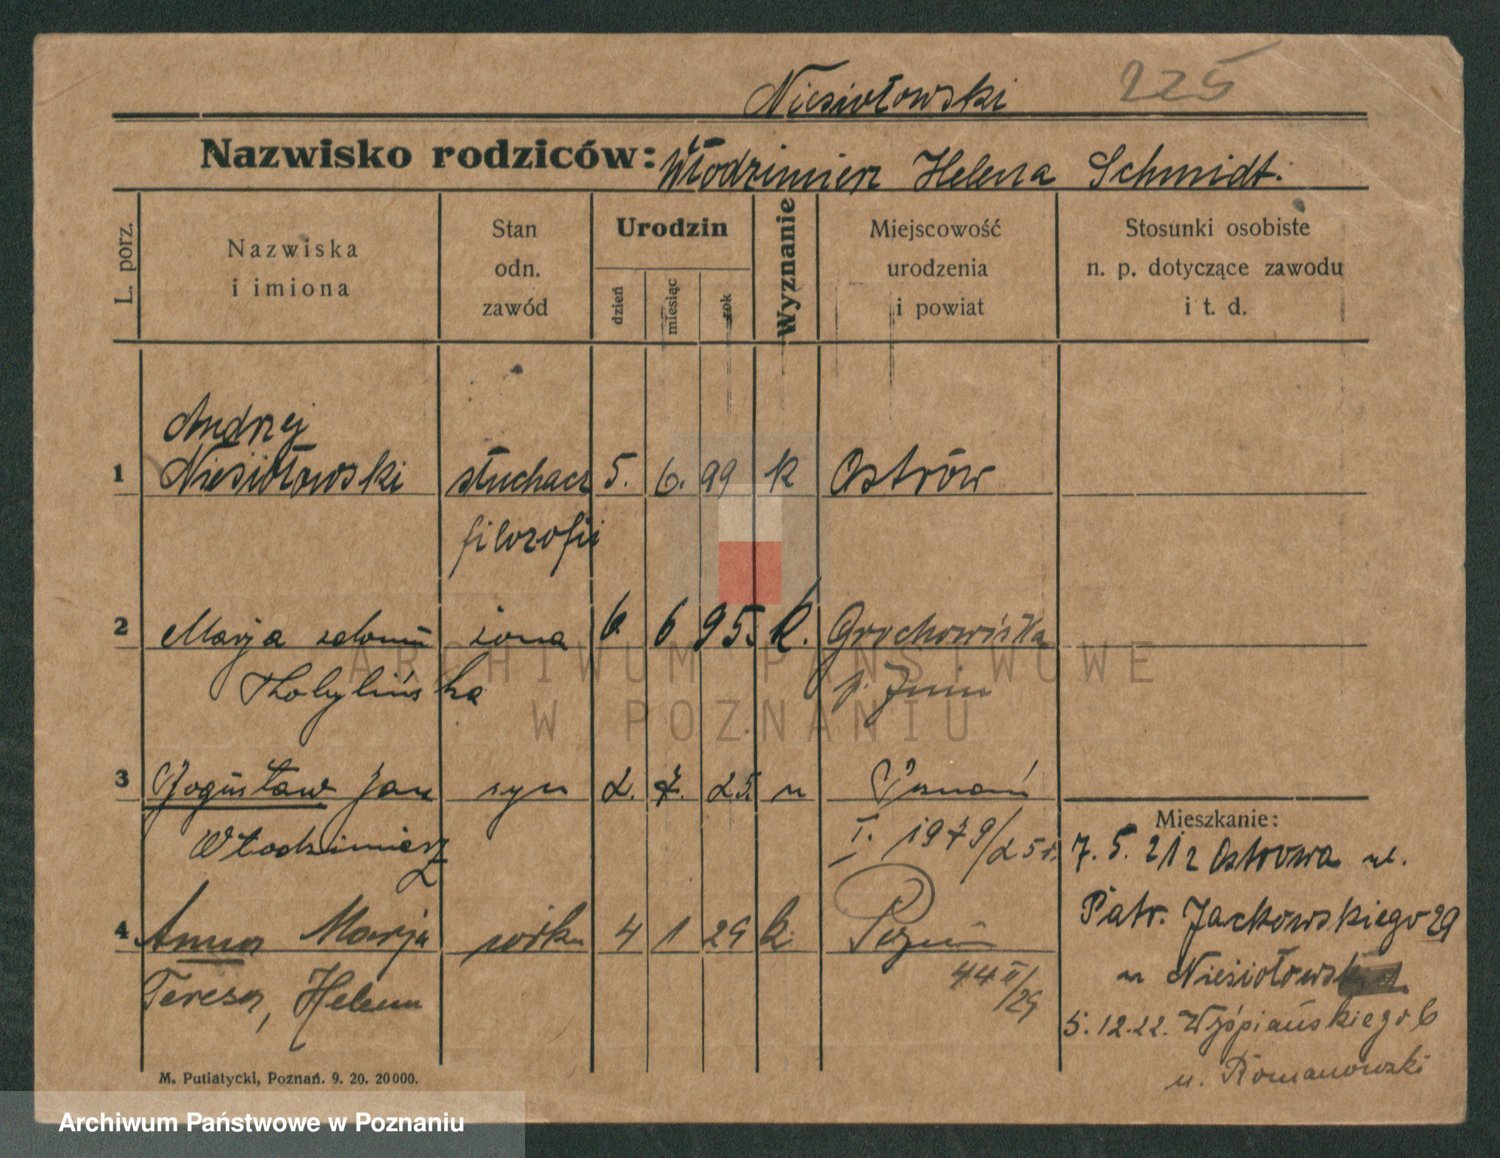 Niesiołowski 225
Nazwisko rodziców: Włodzimierz Helena Schmidt.
L. porz.
Nazwiska
i imiona
Stan
odn.
zawód
Urodzin
dzień
miesiąc
rok
Wyznanie
Miejscowość
urodzenia
i powiat
Stosunki osobiste
n. p. dotyczące zawodu
i t. d.
Andrzej
1 Niesiołowski słuchacz 5. 6. 99 k Ostrów
filozofii
2 Marja żona 6. 6 95. k. Grochowiska
p. Żnin
3 Bogusław Jan syn 2. 7. 25. " Poznań
Włodzimierz I. 1979/25 r.
4 Anna Marja córka 4 1 29 k. Pozn
Teresa, Helena 44 II/29
Mieszkanie:
7. 5. 212 Ostrowa ul.
Patr. Jackowskiego 29
u Niesiołowski
5. 12. 22. Wyspiańskiego 6
u. Romanowski
M. Putiatycki, Poznań. 9. 20. 20000.
ARCHIWUM PAŃSTWOWE
W POZNANIU
Archiwum Państwowe w Poznaniu